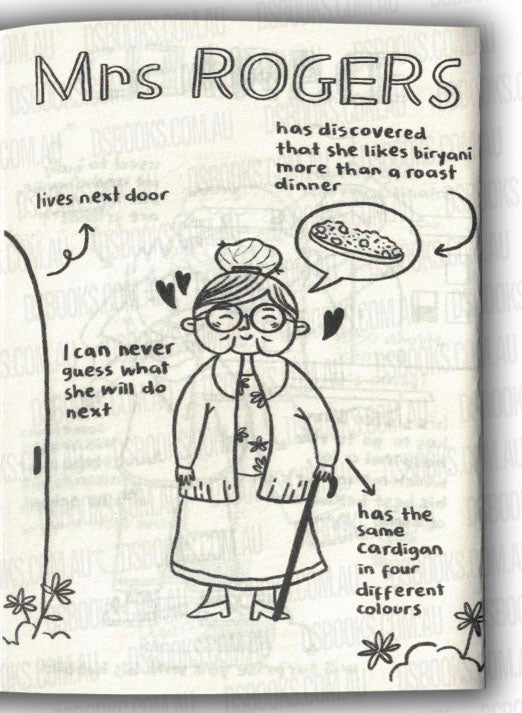 Mrs ROGERS
has discovered
that she likes biryani
more than a roast
dinner
lives next door
I can never
guess what
she will do
next
has the
same
cardigan
in four
different
colours
DSBOOKS.COM.AU